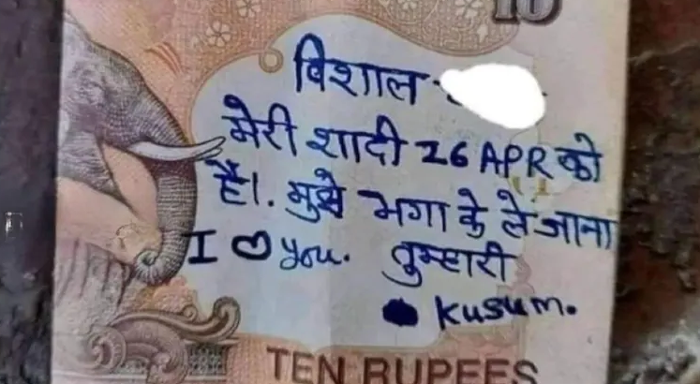 10
विशाल
मेरी शादी 26 APR को
है।. मुझे भगा के ले जाना
I ♡ you. तुम्हारी
kusum.
TEN RUPEES